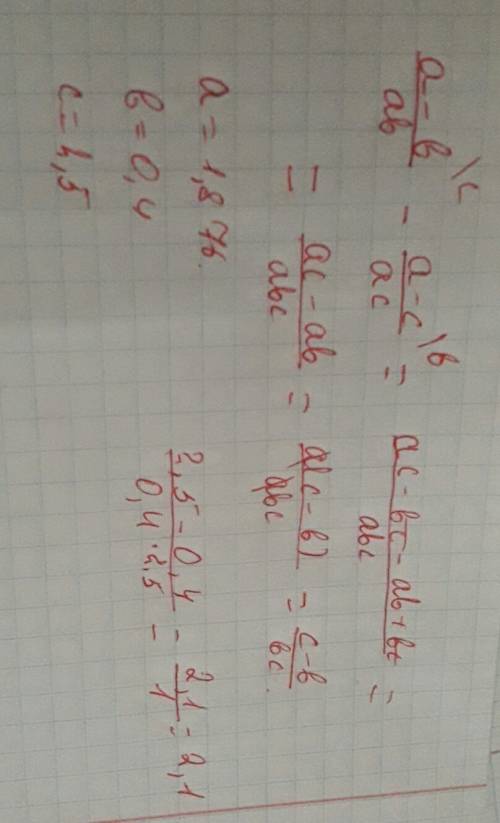 (a - b)/(ab) \c - (a - c)/(ac) \b = (ac - bc - ab + bc)/(abc) =
= (ac - ab)/(abc) = (a(c - b))/(abc) = (c - b)/(bc)
a = 1,876
b = 0,4
c = 2,5
(2,5 - 0,4)/(0,4 · 2,5) = 2,1/1 = 2,1